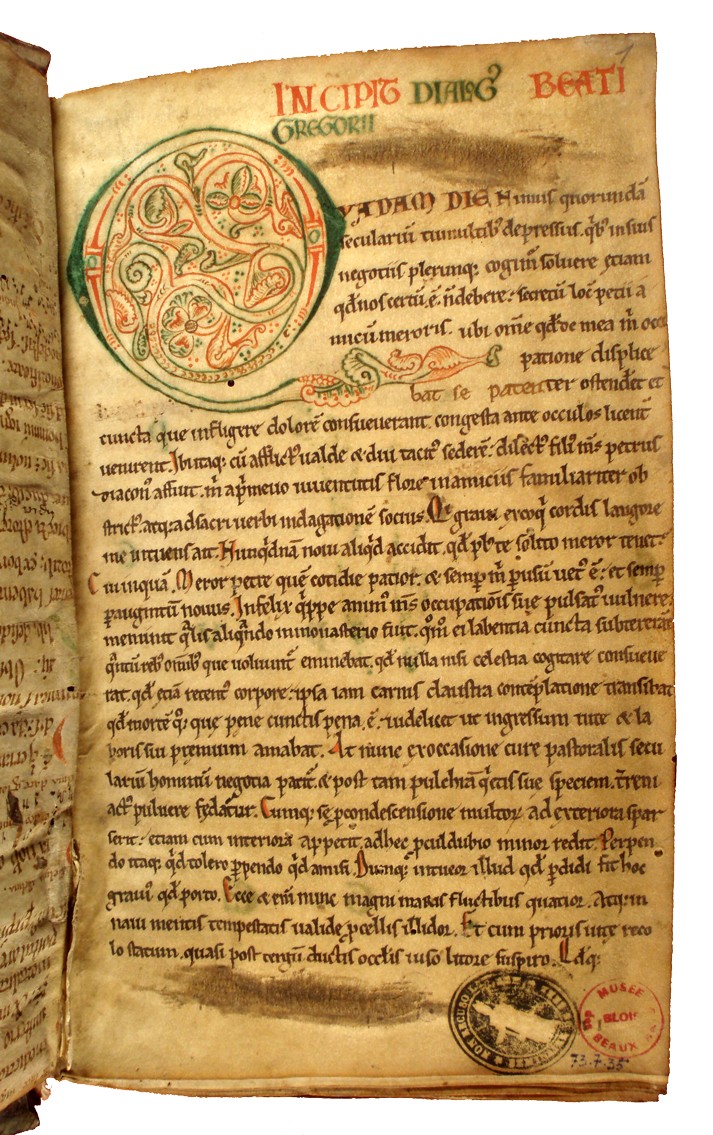 1
INCIPIT DIALOG' BEATI
GREGORII
QVADAM DIE Nimiis quorundā
seculariū tumultib' depressus. qib' in suis
negotiis plerunq; cogim' soluere etiam
qd nos certū. ē. ñ debere: secretū locū petii a
micū meroris. ubi om̄e qd de mea m̄ occu
patione displice
bat se patenter ostenderet et
cuncta que infligere dolorē consueuerant. congesta ante occulos licent'
uenirent. Ibi itaq; cū afflict' ualde & diu tacit' sederē: dilect' fili' m's petrus
diacon' affuit. m̄ a p'meuo iuuentutis flore in amiciis familiariter ob
strict'. atq; ad sacri uerbi indagationē socius. Qi graui excoqi cordis langore
me intuens ait. Nunqd nam noui aliqd accidit. qd plus te solito meror tenet:
Cui inquam. Meror petre quē cotidie patior. & semp m̄ p usū uet' ē: et semp
p augmtū nouus. Infelix qippe anim' m's occupationis sue pulsat' uulnere:
meminit qlis aliqndo in monasterio fuit. qm̄ ei labentia cuncta subter erāt
qntū reb' omib' que uoluunt' eminebat. qd nulla nisi celestia cogitare consueue
rat. qd etiā retent' corpore: ipsa iam carnis claustra contēplatione transibat
qd mortē q; que pene cunctis pena. ē: uidelicet ut ingressum uite & la
boris sui premium amabat. At nunc ex occasione cure pastoralis secu
lariū hominū negotia patit'. & post tam pulchrā qietis sue speciem. treni
act' puluere fedatur. Cumq; se p condescensione multor ad exteriora spar
serit: etiam cum interiora appetit. ad hec pculdubio minor redit. Perpen
do itaq; qd tolero ppendo qd amisi. Dumq; intueor illud qd pdidi fit hoc
graui' qd porto. Ecce & em̄ nunc magni maris fluctibus quatior. Atq; in
naui mentis tempestatis ualide pcellis illidor. Et cum prioris uite reco
lo statum. quasi post tergum ductis occlis uiso litore suspiro. Qdq;
MUSEE
BLOIS
BEAUX
73.7.35